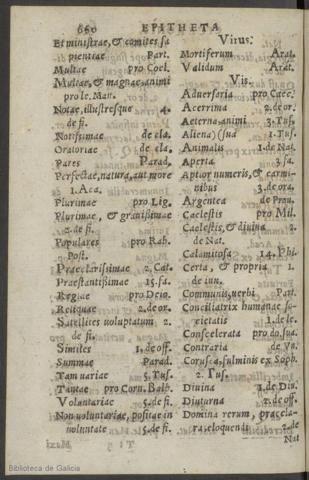 660 EPITHETA
Et ministrae, & comites sa
pientiae Part.
Multae pro Coel.
Multae, & magnae, animi
pro le. Man.
Notae, illustresque 4.
de fi.
Notissimae de cla.
Oratoriae de cla.
Pares Parad.
Perfectae, natura, aut more
1. Aca.
Plurimae pro Lig.
Plurimae, & gravissimae
2. de fi.
Populares pro Rab.
Post.
Praeclarissimae 2. Cat.
Praestantissimae 15. fa.
Regiae pro Deio.
Reliquae 2. de or.
Satellites voluptatum 2.
de fi.
Similes 1. de off.
Summae Parad.
Tam variae 5. Tus.
Tantae pro Corn. Balb.
Voluntariae 5. de fi.
Non voluntariae, positae in
voluntate 5. de fi.
Virus.
Mortiferum Arat.
Validum Arat.
Vis.
Adversaria pro Caec.
Acerrima 2. de or.
Aeterna, animi 3. Tus.
Aliena) (sua 1. Tus.
Animalis 1. de Nat.
Aperta 3. fa.
Aptior numeris, & carmi-
nibus 3. de ora.
Argentea de Prau.
Caelestis pro Mil.
Caelestis, & divina 2.
de Nat.
Calamitosa 14. Phi.
Certa, & propria 1.
de inu.
Communis, verbi Part.
Conciliatrix humanae so-
cietatis 1. de le.
Conscelerata pro do. sua.
Contraria de Va.
Corusca, fulminis ex Soph.
2. Tus.
Divina 1. de Div.
Diuturna 2. de off.
Domina rerum, praecla-
ra, eloquendi 2. de
Nat
Biblioteca de Galicia